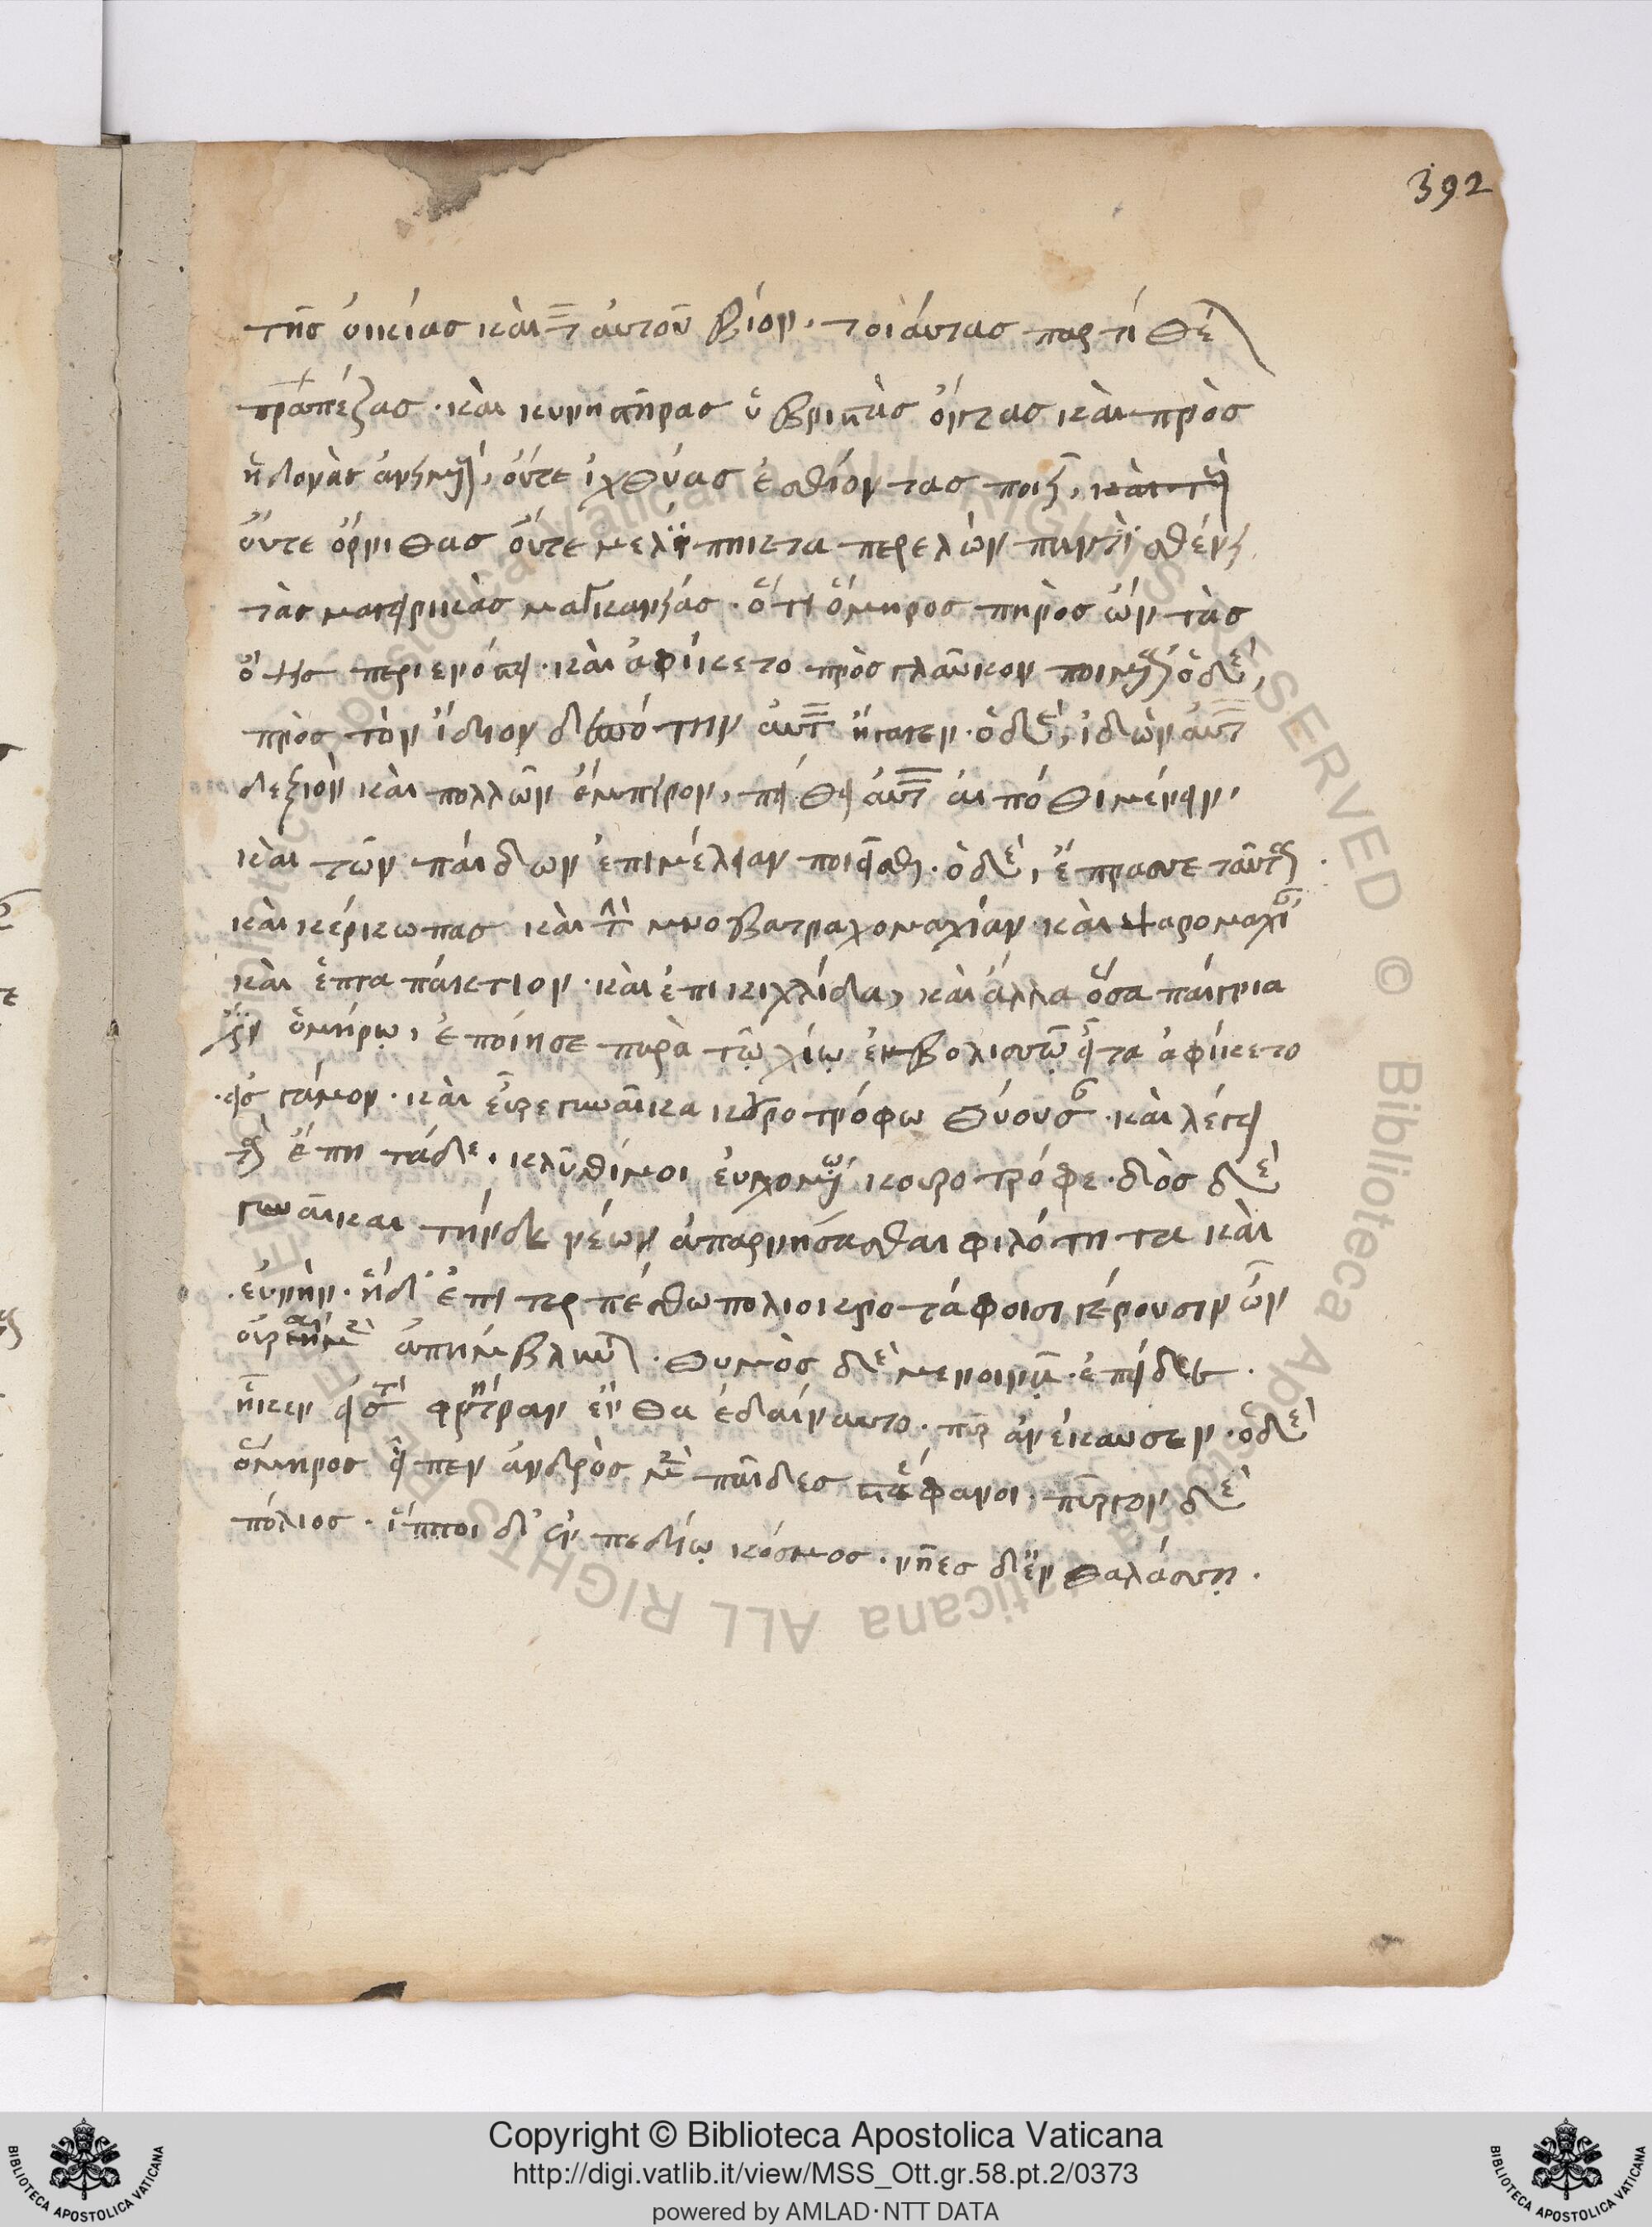 392
τῆς οἰκίας καὶ τ αὐτοῦ βίον. τοιαύτας παρτίθε
τραπέζας. καὶ κυνητῆρας ὑβριστὰς ὄντας καὶ πρὸς
ἡδονὰς οὔτε ἰχθύας ἐσθίοντας ποιεῖ,
οὔτε ὄρνιθας οὔτε
τὰς μαγειρικὰς μαγγανείας. ὅτι ὅμηρος πηρὸς ὢν τὰς
ὄψεις περιενόστει. καὶ ἀφίκετο πρὸς γλαῦκον ποιμένα ὁ δὲ,
πρὸς τὸν ἴδιον δεσπότην αὐτὸν ἤγαγεν. ὁ δὲ, ἰδὼν αὐτὸν
δεξιὸν καὶ πολλῶν ἔμπειρον, πείθει αὐτὸν αὐτόθι μένειν.
καὶ τῶν παίδων ἐπιμέλειαν ποιεῖσθαι. ὁ δὲ, ἔπρασσε ταῦτα.
καὶ κέρκωπας καὶ τὴν μυοβατραχομαχίαν καὶ ψαρομαχίαν
καὶ ἑπταπάκτιον. καὶ ἐπικιχλίδα, καὶ ἄλλα ὅσα παίγνια
ὁμήρῳ, ἐποίησε παρὰ τῷ χίῳ ἐν βολισσῷ εἶτα ἀφίκετο
εἰς σάμον. καὶ εὗρε γυναῖκα κουροτρόφω θύουσαν. καὶ λέγει
τὰ ἔπη τάδε. κλῦθί μοι εὐχομένω κουροτρόφε. δὸς δὲ
γυναῖκαι τήνδε νέων ἀπαρνήσασθαι φιλότητα καὶ
εὐνήν. ἡδ' ἐπιτερπέσθω πολιοκροτάφοισι γέρουσιν ὧν
οὐρὴ μὲν ἀπήμβλυνται. θυμὸς δὲ μενοινᾷ. ἐπεὶ δὲ
ἧκεν εἰς τὴν φρήτραν ἔνθα ἐδαίνυντο. πῦρ ἀνέκαυσεν. ὁ δὲ
ὅμηρος εἶπεν ἀνδρὸς μὲν παῖδες στέφανοι. πῦργοι δὲ
πόλιος. ἵπποι δ' ἐν πεδίῳ κόσμος. νῆες δ' ἐν θαλάσσῃ.
Copyright © Biblioteca Apostolica Vaticana
http://digi.vatlib.it/view/MSS_Ott.gr.58.pt.2/0373
powered by AMLAD·NTT DATA
BIBLIOTECA APOSTOLICA VATICANA
BIBLIOTECA APOSTOLICA VATICANA